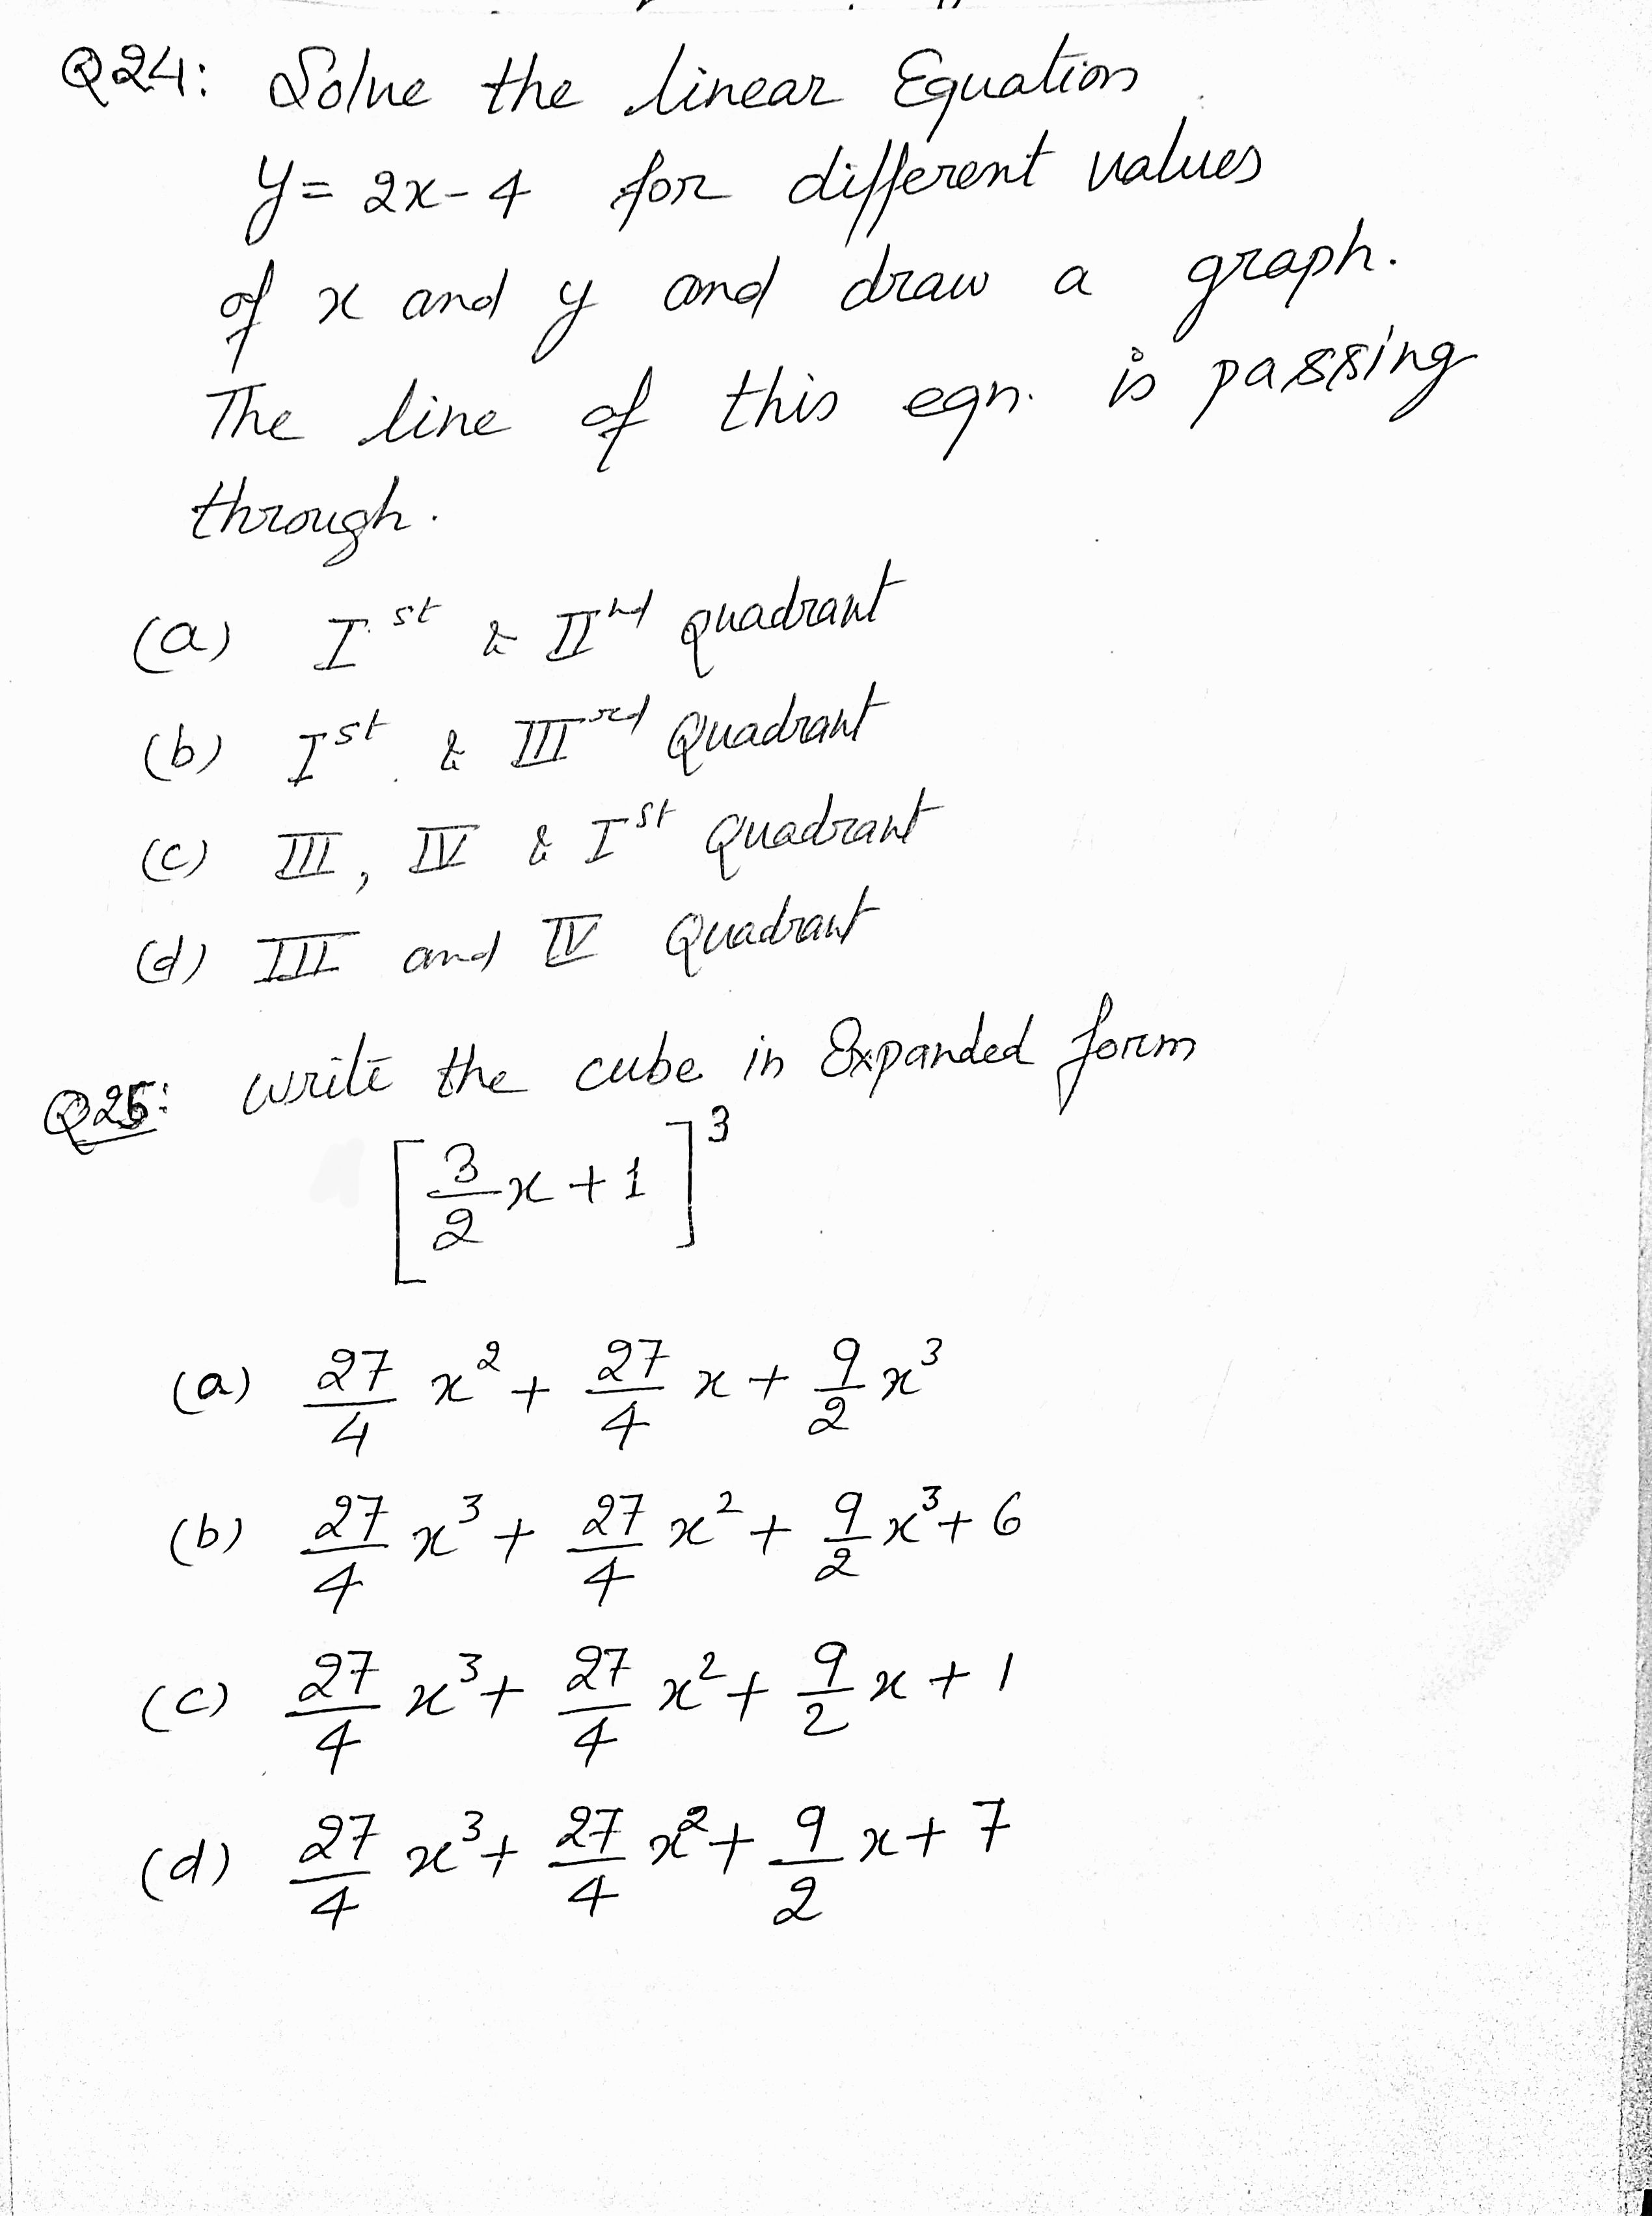 Q24: Solve the linear Equation
y = 2x - 4 for different values
of x and y and draw a graph.
The line of this eqn. is passing
through.
(a) I st & II nd quadrant
(b) I st & III rd Quadrant
(c) III, IV & I st Quadrant
(d) III and IV Quadrant
Q25: write the cube in Expanded form
[3/2 x + 1]³
(a) 27/4 x² + 27/4 x + 9/2 x³
(b) 27/4 x³ + 27/4 x² + 9/2 x³ + 6
(c) 27/4 x³ + 27/4 x² + 9/2 x + 1
(d) 27/4 x³ + 27/4 x² + 9/2 x + 7